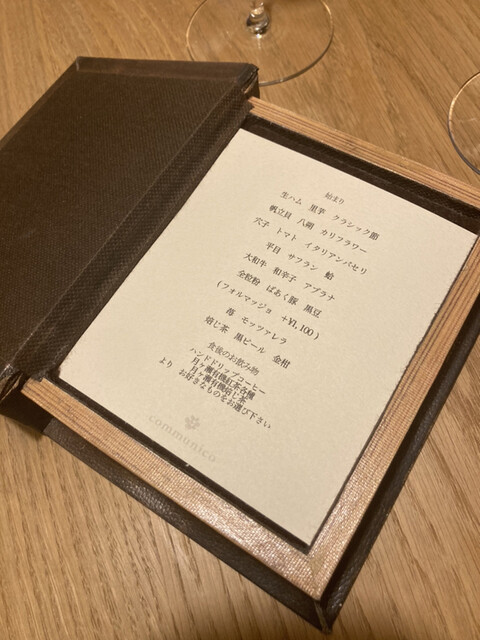 始まり
生ハム 里芋 クラシック節
帆立貝 八朔 カリフラワー
穴子 トマト イタリアンパセリ
平目 サフラン 蛤
大和牛 和辛子 アブラナ
全粒粉 ばあく豚 黒豆
(フォルマッジョ +¥1,100)
苺 モッツァレラ
焙じ茶 黒ビール 金柑
食後のお飲み物
ハンドドリップコーヒー
月ヶ瀬有機紅茶各種
月ヶ瀬有機焙じ茶
より お好きなものをお選び下さい
communico